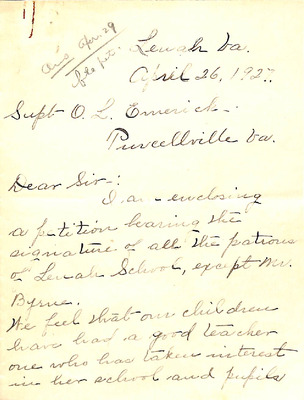 Ans Apr. 29
file pet.
Lenah Va.
April 26, 1927.
Supt O. L. Emerick-:
Purcellville Va.
Dear Sir-:
I am enclosing
a petition bearing the
signature of all the patrons
of Lenah School, except Mr.
Byrne.
We feel that our children
have had a good teacher
one who has taken interest
in her school and pupils